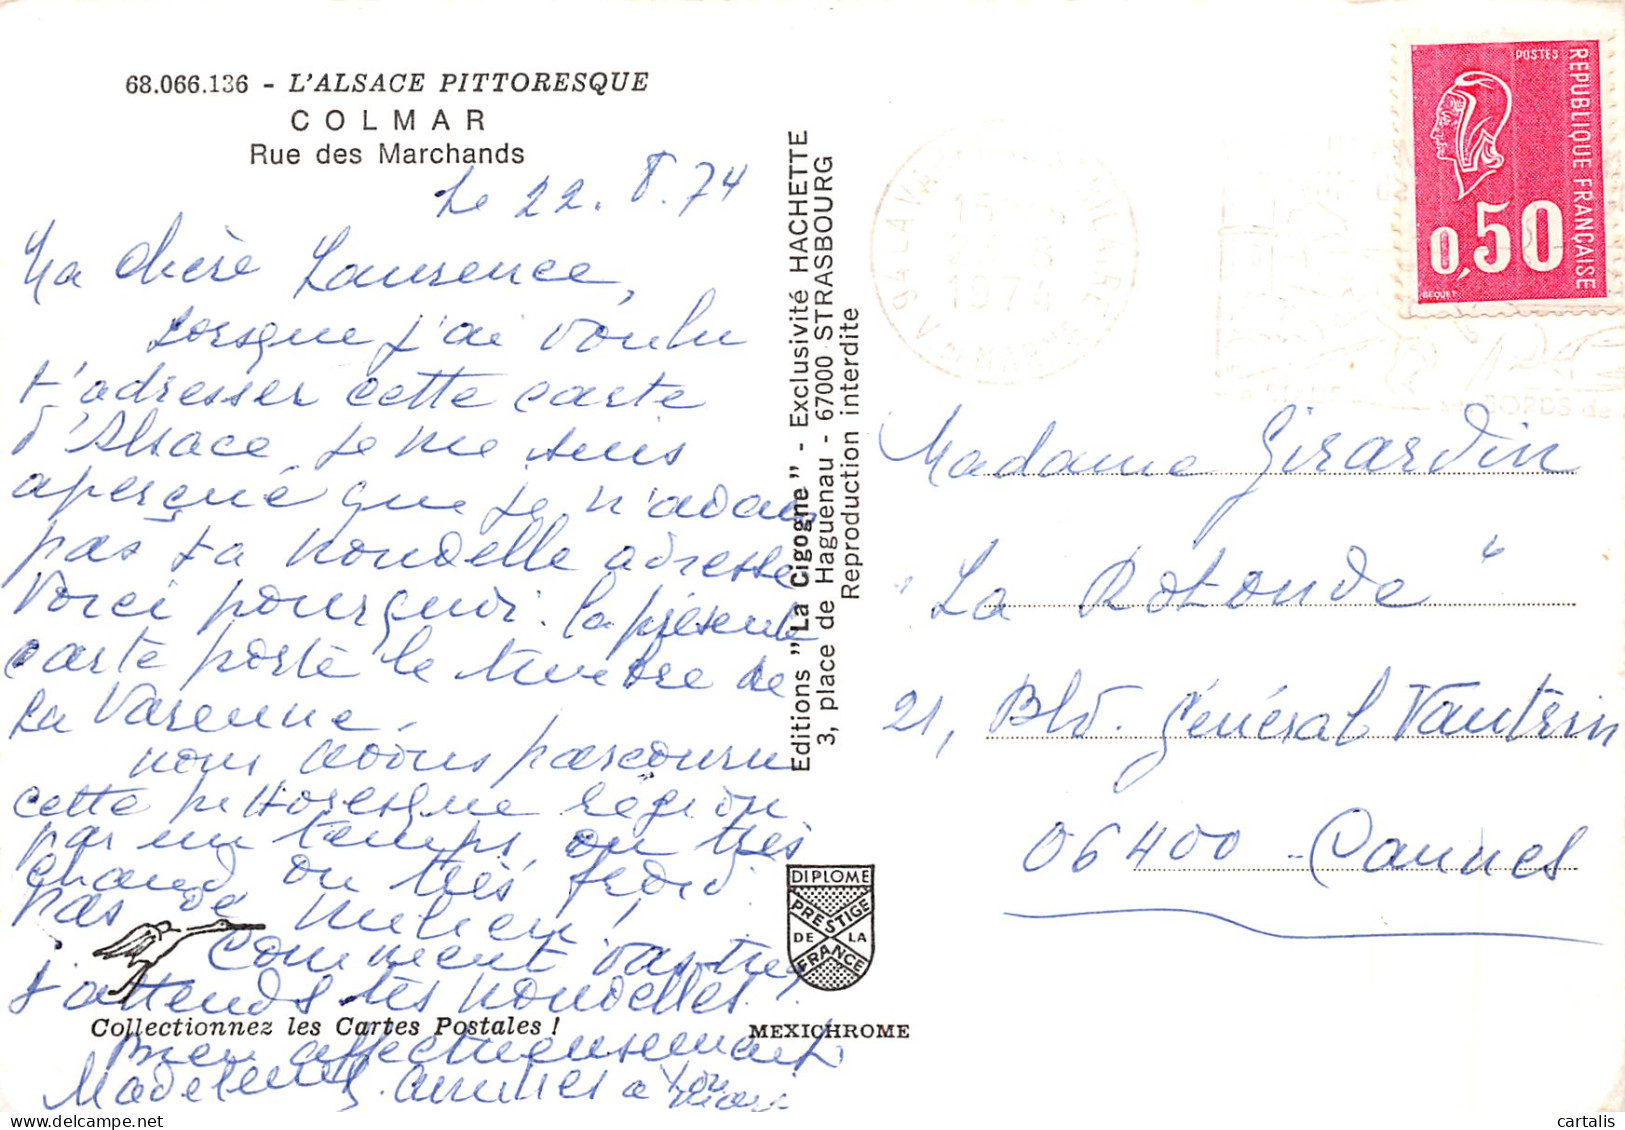 68.066.136 - L'ALSACE PITTORESQUE
COLMAR
Rue des Marchands
Le 22. 8. 74
Ma chère Laurence,
Lorsque j'ai voulu
t'adresser cette carte
d'Alsace je me suis
aperçue que je n'avais
pas ta nouvelle adresse
Voici pourquoi la présente
carte porte le timbre de
La Varenne.
Nous avons parcouru
cette pittoresque région
par un temps ou très
chaud ou très froid
pas de milieu !
Comment vas-tu ?
J'attends tes nouvelles
Bien affectueusement
Madeleine
amitiés à ton
mari
Collectionnez les Cartes Postales !
Editions "La Cigogne" - Exclusivité HACHETTE
3, place de Haguenau - 67000 STRASBOURG
Reproduction interdite
DIPLOME
PRESTIGE
DE LA
FRANCE
MEXICHROME
POSTES
REPUBLIQUE FRANÇAISE
0,50
BEQUET
94 LA VARENNE
1974
BORDS de
Madame Girardin
"La Rotonde"
21, Bld. Général Vautrin
06400 - Cannes
cartalis